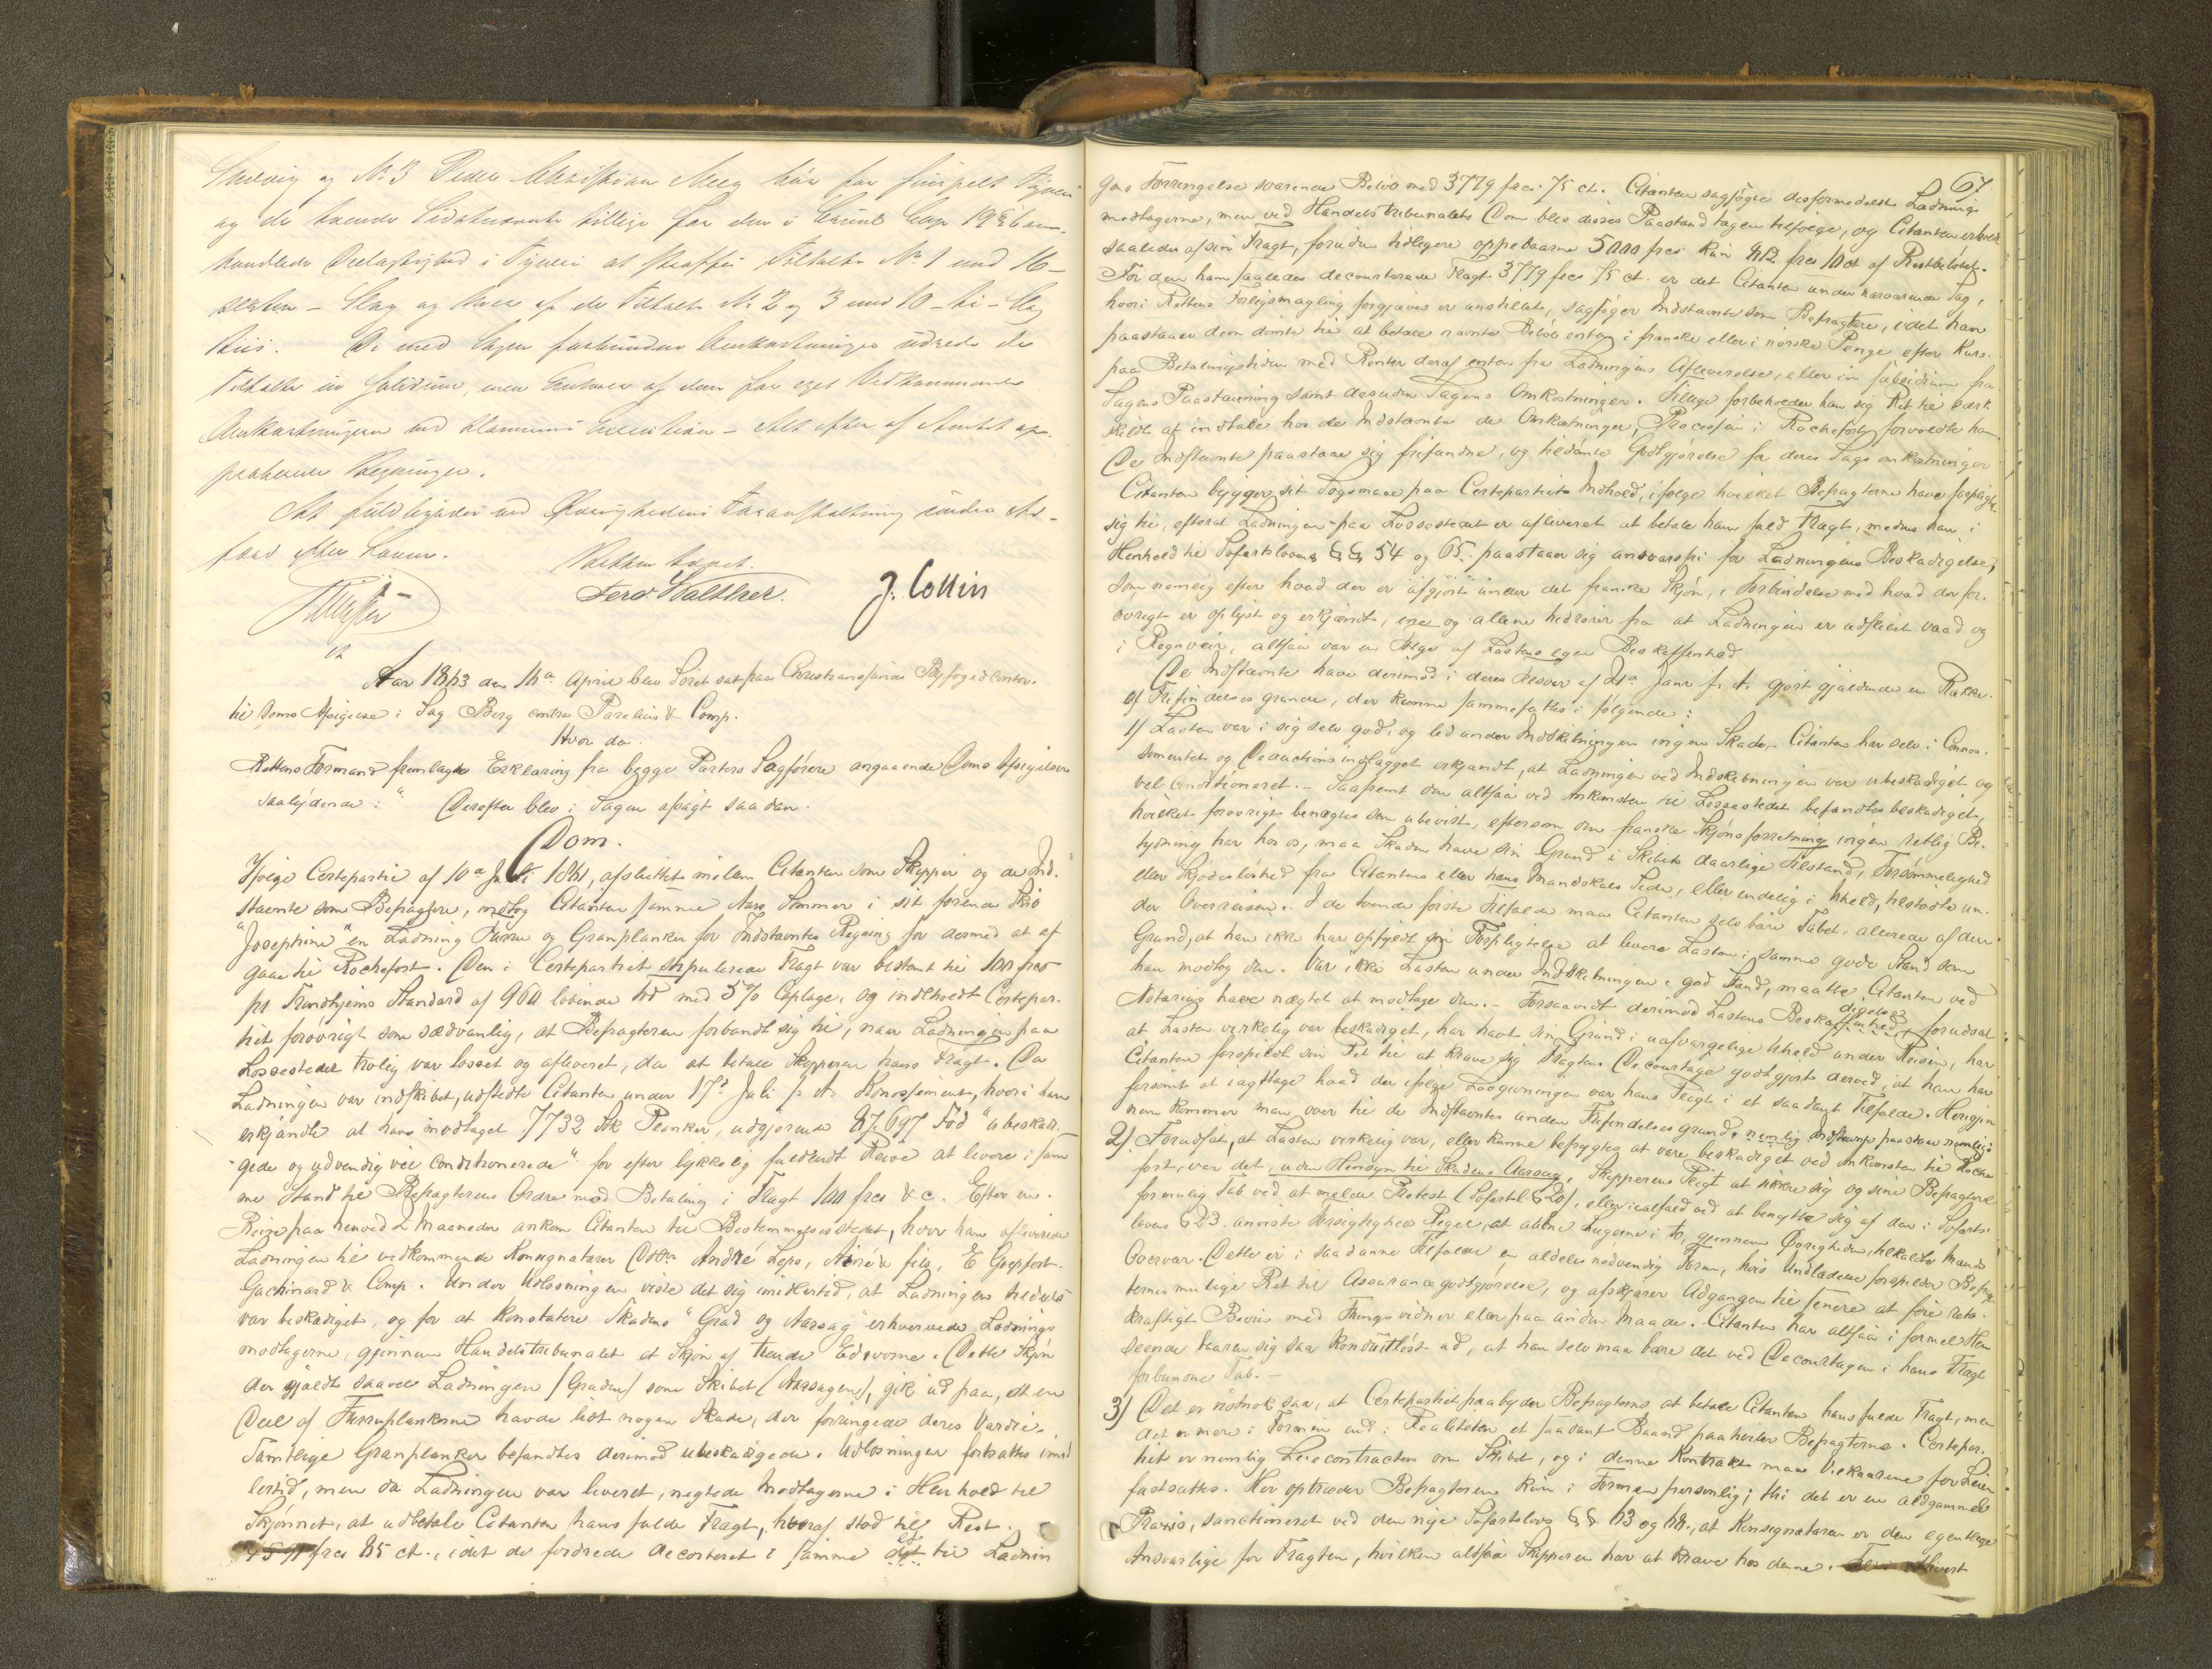 Ludvig og No 3 Peder Christian Meeg bør for simpelt Tyveri
og de tvende Sidstnævnte tillige for den i Criml. Cap 19 § 6 om-
handlede Deelagtighed i Tyveri at straffes Tiltalte No 1 med 16 –
sexten – Slag og hver af de Tiltalte No 2 og 3 med 10 – ti – Slag
Riis. De med Sagen forbundne Omkostninger udrede de
Tiltalte in Solidum, men Enhver af dem for eget Vedkommende
Omkostningerne ved Dommens Execution – Alt efter af Amtet ap-
proberede Regninger.
At fuldbyrdes ved Øvrighedens Foranstaltning under Ad-
færd efter Loven.
Retten hævet.
Ferd. Walther. J. Collin
Aar 1863 den 16de April blev Søret sat paa Christiansunds Byfogedcontor
til Doms Afsigelse i Sag Berg contra Parelius & Comp.
Hvor da
Rettens Formand fremlagde Erklæring fra begge Parters Sagførere angaaende Doms Afsigelsen
saalydende: " Derefter blev i Sagen afsagt saadan
Dom.
Ifølge Certepartie af 10de Juli 1861, afsluttet mellem Citanten som Skipper og de Ind-
stævnte som Befragtere, indtog Citanten samme Aars Sommer i sit førende Skib
"Josephine" en Ladning Furru og Granplanker for Indstævntes Regning for dermed at af
gaae til Rochefort. Den i Certepartiet stipulerede Fragt var bestemt til 100 frcs
pr Trondhjems Standard af 960 løbende Fod med 5% Caplage, og indeholdt Certepar-
tiet forøvrigt som sædvanlig, at Befragteren forbandt sig til, naar Ladningen paa
Lossestedet trolig var losset og afleveret, da at betale Skipperen hans Fragt. Da
Ladningen var indskibet, udstedte Citanten under 17de Juli s. A. Konossement, hvori han
erkjendte at have modtaget 7732 Stk Planker, udgjørende 87,697 Fod "ubeskad-
igede og udvendig vel conditionerede" for efter lykkelig fuldendt Reise at levere i sam
me Stand til Befragterens Ordre mod Betaling i Fragt 100 frcs &c. Efter en
Reise paa henved 2 Maaneder ankom Citanten til Bestemmelsesstedet, hvor han afleverede
Ladningen til vedkommende Konsignatarer André Leps, Aimé & fils, E
Gachinard & Comp. Under Udlosningen viste det sig imidlertid, at Ladningen tildels
var beskadiget, og for at konstatere Skadens "Grad og Aarsag" erhvervede Ladnings
modtagerne, gjennem Handelstribunalet et Skjøn af trende Edsvorne. Dette Skjøn
der gjaldt saavel Ladningen (Graden) som Skibet (Aarsagen), gik ud paa, at en
Deel af Furruplankerne havde lidt nogen Skade, der forringede deres Værdie.
Samtlige Granplanker befandtes derimod ubeskadigede. Udlosningen fortsattes imid
lertid, men da Ladningen var leveret, negtede Modtagerne i Henhold til
Skjønnet, at udbetale Citanten hans fulde Fragt, hvoraf stod til Rest
frcs 85 ct., idet de fordrede decorteret i samme til Ladnin
67
gens Forringelse svarende Beløb med 3779 frcs 75 ct. Citanten sagsøgte desformedelst Ladnings
modtagerne, men ved Handelstribunalets Dom blev disses Paastand tagen tilfølge, og Citanten erholdt
saaledes af sin Fragt, foruden tidligere oppebaarne 5000 frcs kun 812 frcs 10 ct af Restbeløbet.
For den ham saaledes decourterede Fragt 3779 frcs 75 ct. er det Citanten under nærværende Sag,
hvori Rettens Forligsmægling forgjæves er anstillet, sagsøger Indstævnte som Befragtere, idet han
paastaaer dem dømte til at betale nævnte Beløb enten i franske eller i norske Penge efter Kurs
paa Betalingstiden med Renter deraf enten fra Ladningens Afleverelse, eller in subsidium fra
Sagens Paastævning samt desuden Sagens Omkostninger. Tillige forbeholder han sig Ret til særs
kildt at indtale hos de Indstævnte de Omkostninger, Processen i Rochefort forvoldte ham
De Indstævnte paastaae sig frifundne, og tildømte Godtgjørelse for deres Sags omkostninger
Citanten bygger sit Søgsmaal paa Certepartiets Indhold, ifølge hvilket Befragterne have forpligtet
sig til, efterat Ladningen paa Lossestedet er afleveret at betale ham fuld Fragt, medens han i
Henhold til Søfartsloven §§ 54 og 65 paastaaer sig ansvarsfri for Ladningens Beskadigelse,
som nemlig efter hvad der er afgjort under det franske Skjøn, i Forbindelse med hvad der for-
øvrigt er oplyst og erkjendt, ene og allene hidrører fra at Ladningen er udskibet vaad og
i Regnveir, altsaa var en Følge af Lastens egen Beskaffenhed
De Indstævnte have derimod i deres Tilsvar af 21de Janr f. A. gjort gjældende en Række
af Frifindelsesgrunde, der kunne sammenfattes i følgende:
1) Lasten var i sig selv god, og led under Indskibningen ingen Skade. Citanten har selv i Connos-
sementet og Deductionsindlægget erkjendt, at Ladningen ved Indskibningen var ubeskadiget og
vel conditioneret. – Saafremt den altsaa ved Ankomsten til Lossestedet befandtes beskadiget,
hvilket forøvrigt benægtes som ubevist, eftersom den franske Skjønsforretning ingen retlig Be-
tydning har hos os, maa Skaden have sin Grund i Skibets daarlige Tilstand, Forsømmelighed
eller Skjødesløshed fra Citantens eller hans Mandskabs Side, eller endelig i Uheld, tilstødte un-
der Overreisen. I de tvende første Tilfælde maa Citanten selv bære Tabet, allerede af den
Grund, at han ikke har opfyldt sin Forpligtelse at levere Lasten i samme gode Stand som
han modtog den. Var ikke Lasten under Indskibningen i god Stand, maatte Citanten ved
Notarius have nægtet at modtage den. – Forsaavidt derimod Lastens Beskadigelse, forudsat
at Lasten virkelig var beskadiget, har havt sin Grund i uafværgelige Uheld under Reisen, har
Citanten forspildt sin Ret til at kræve sig Fragtens Decourtage godtgjort derved, at han har
forsømt at iagttage hvad der ifølge Lovgivningen var hans Pligt i et saadant Tilfælde. Herigjen
nem kommer man over til de Indstævntes anden Frifindelsesgrund, nemlig
2) Forudsat, at Lasten virkelig var, eller kunne befrygtes at være beskadiget ved Ankomsten til Roche
fort, var det, uden Hensyn til Skadens Aarsag, Skipperens Pligt at sikkre sig og sine Befragtere
for mulig Tab ved at melde Protest (Søfartsl. § 20), eller ialfald ved at benytte sig af den i Søfarts
lovens § 23 anviste Forsigtigheds Regel, at aabne Lugerne i to, gjennem Øvrigheden, tilkaldte Mænds
Overvær. Dette er i saadanne Tilfælde en aldeles nødvendig Form, hvis Undladelse forspilder Befrag
ternes mulige Ret til Assurancegodtgjørelse, og afskjærer Adgangen til senere at føre rets-
kraftigt Beviis med Thingsvidner eller paa anden Maade. Citanten har altsaa i formel Hen
seende baaren sig saa konduitløst ad, at han selv maa bære det ved Decourtagen i hans Fragt
forbundne Tab. –
3) Det er nok saa, at Certepartiet paabyder Befragterne at betale Citanten hans fulde Fragt, men
det er mere i Formen end i Realiteten et saadant Baand paahviler Befragterne. Certepar-
tiet er nemlig Leiecontracten om Skibet, og i denne Kontrakt maa Vilkaarene for Leien
fastsættes. Her optræder Befragteren kun i Formen personlig; thi det er en ældgammel
Praxis, sanctioneret ved den nye Søfartslovs §§ 63 og 68, at Konsignataren er den egentlige
Ansvarlige for Fragten, hvilken altsaa Skipperen har at kræve hos denne.